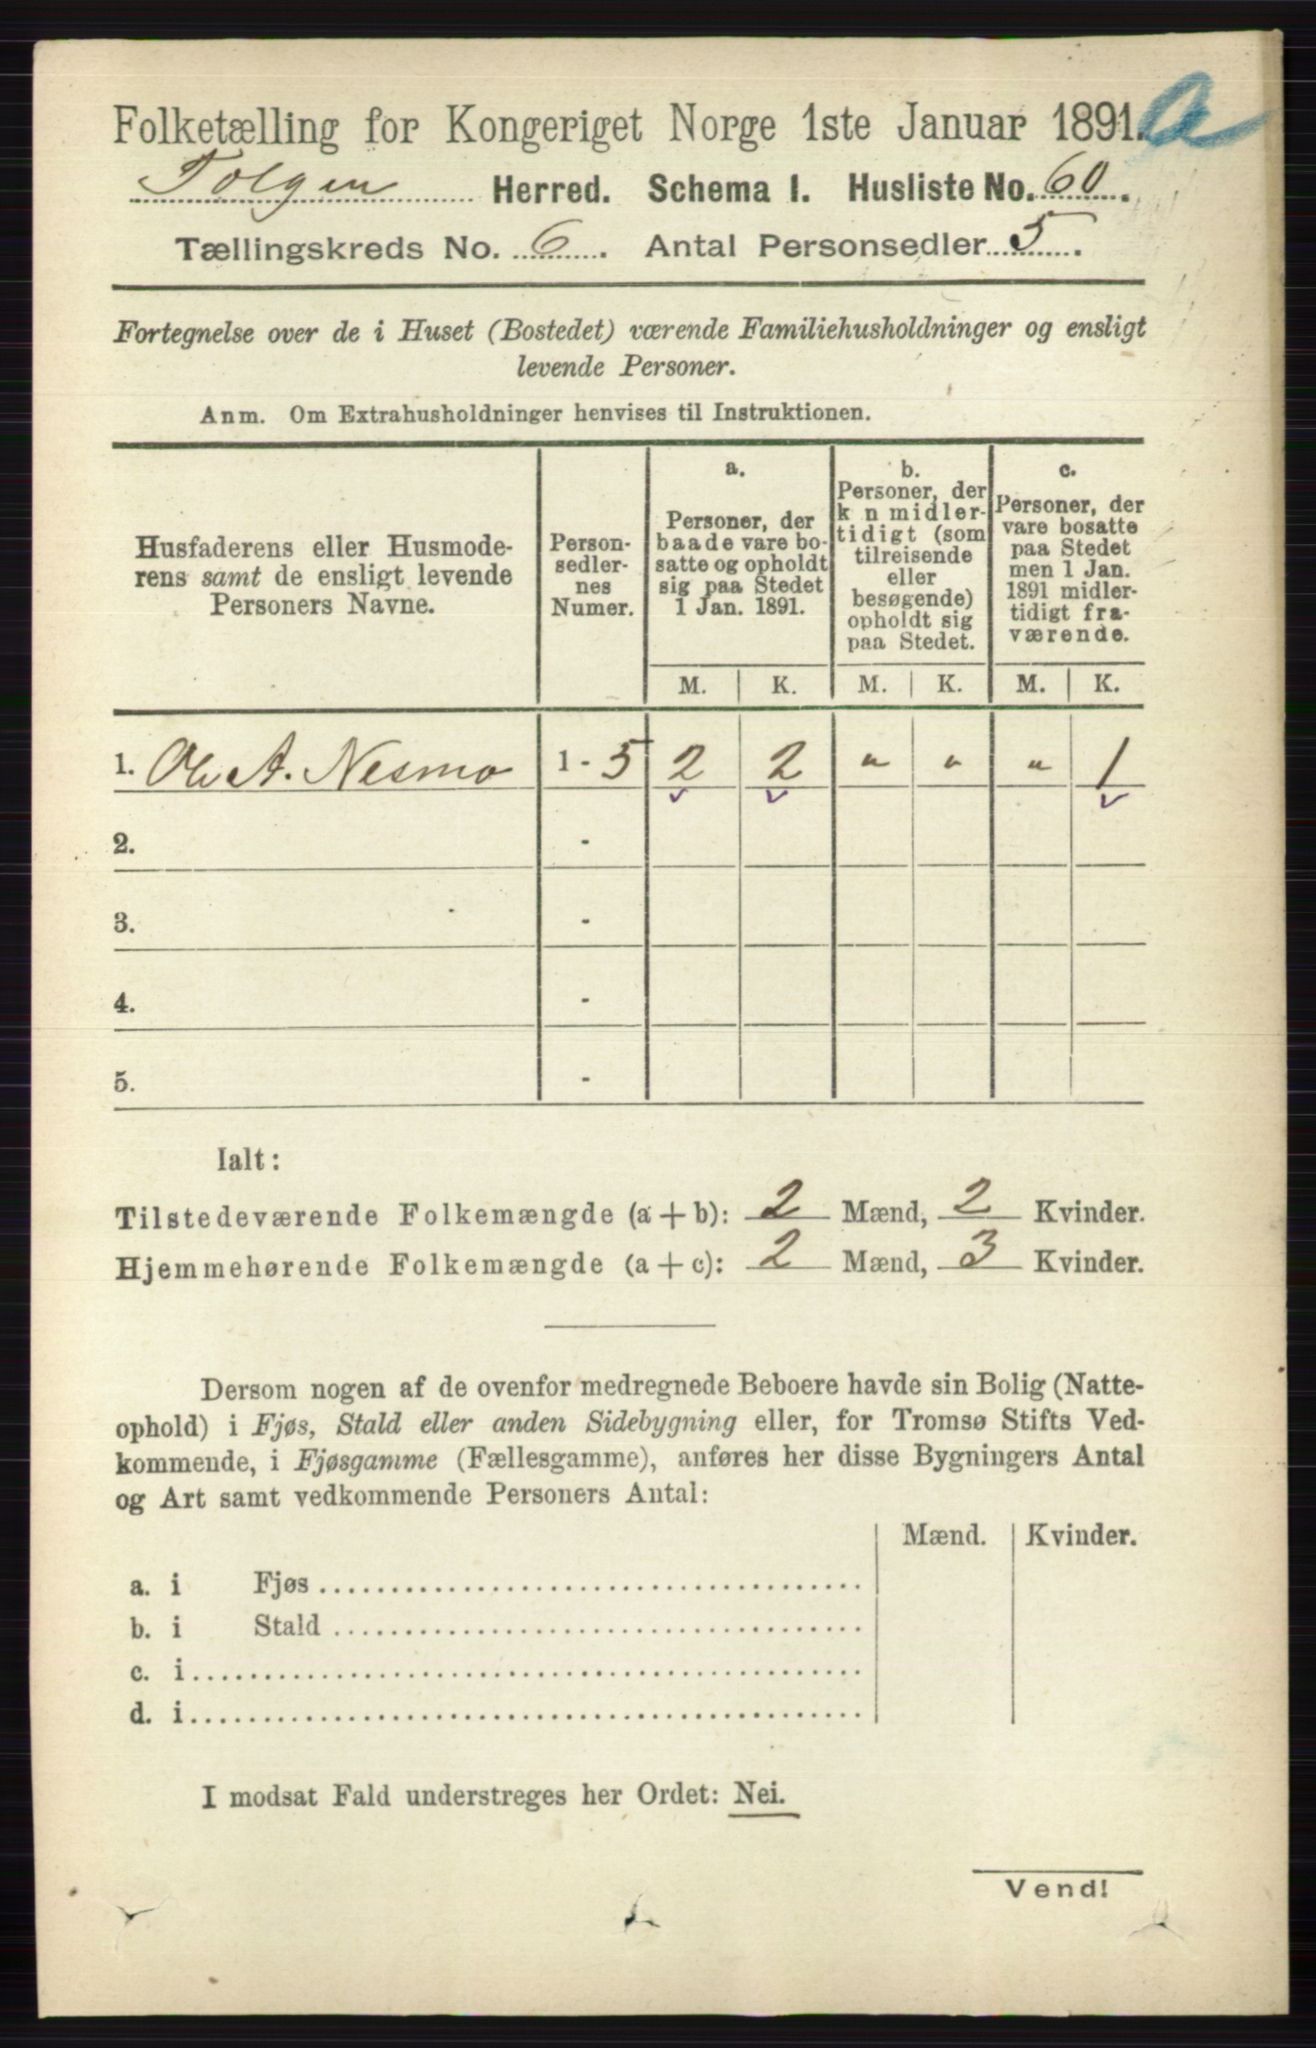 Folketælling for Kongeriget Norge 1ste Januar 1891. a
Tolgen Herred. Schema I. Husliste No. 60.
Tællingskreds No. 6. Antal Personsedler 5.
Fortegnelse over de i Huset (Bostedet) værende Familiehusholdninger og ensligt
levende Personer.
Anm. Om Extrahusholdninger henvises til Instruktionen.
Husfaderens eller Husmode-
rens samt de ensligt levende
Personers Navne.
Person-
sedler-
nes
Numer.
a.
Personer, der
baade vare bo-
satte og opholdt
sig paa Stedet
1 Jan. 1891.
b.
Personer, der
k n midler-
tidigt (som
tilreisende
eller
besøgende)
opholdt sig
paa Stedet.
c.
Personer, der
vare bosatte
paa Stedet
men 1 Jan.
1891 midler-
tidigt fra-
værende.
M. K. M. K. M. K.
1. Ole A. Nesmo 1 - 5 2 2 " " " 1
2. -
3. -
4. -
5. -
Ialt:
Tilstedeværende Folkemængde (a + b): 2 Mænd, 2 Kvinder.
Hjemmehørende Folkemængde (a + c): 2 Mænd, 3 Kvinder.
Dersom nogen af de ovenfor medregnede Beboere havde sin Bolig (Natte-
ophold) i Fjøs, Stald eller anden Sidebygning eller, for Tromsø Stifts Ved-
kommende, i Fjøsgamme (Fællesgamme), anføres her disse Bygningers Antal
og Art samt vedkommende Personers Antal:
Mænd. Kvinder.
a. i Fjøs
b. i Stald
c. i
d. i
I modsat Fald understreges her Ordet: Nei.
Vend!